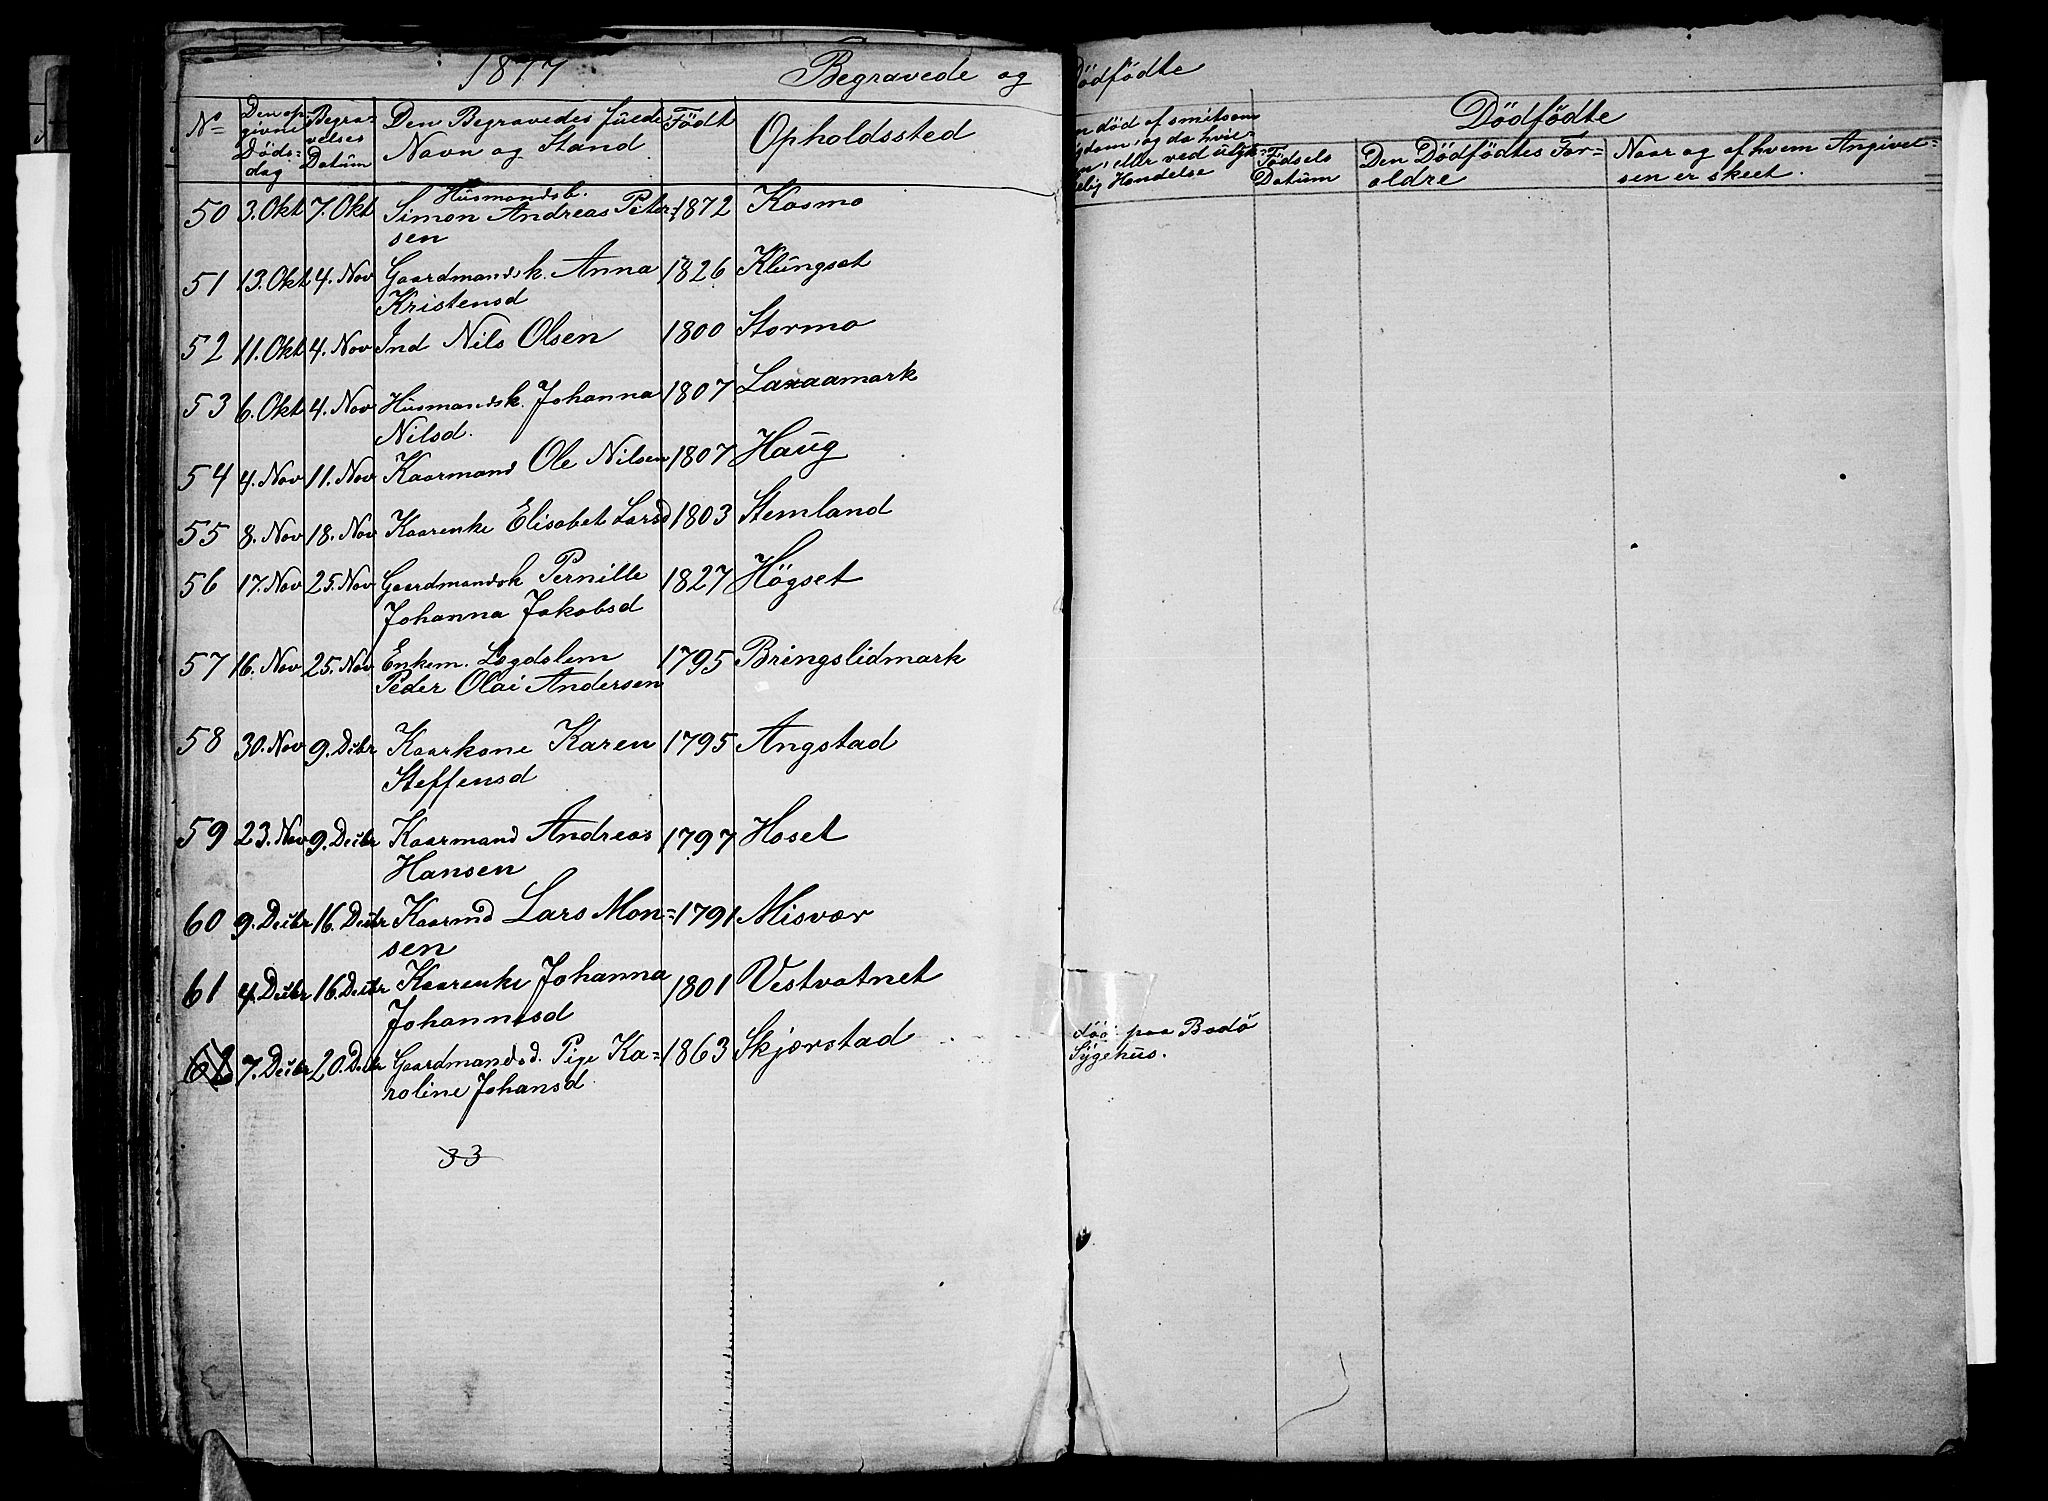 1877 Begravede og
Dödfödte
No
Den op-
givne
Döds-
dag
Begra-
velses
Datum
Den Begravedes fulde
Navn og Stand
Födt
Opholdssted
död af smitsom
og da hvil-
eller ved ulyk-
Hendelse
Dödfödte
Födsels
Datum
Den Dödfödtes For-
ældre
Naar og af hvem Angivel-
sen er skeet.
Husmandsb.
50 3. Okt 7. Okt Simon Andreas Peter- 1872 Kosmo
sen
51 13. Okt 4. Nov Gaardmandsk. Anna 1826 Klungset
Kristensd
52 11. Okt 4. Nov Ind Nils Olsen 1800 Stormo
53 6. Okt 4. Nov Husmandsk. Johanna 1807 Laxaamark
Nilsd.
54 4. Nov 11. Nov Kaarmand Ole Nilsen 1807 Haug
55 8. Nov 18. Nov Kaarenke Elisabet Larsd 1803 Stemland
56 17. Nov 25. Nov Gaardmandsk Pernille 1827 Högset
Johanna Jakobsd
57 16. Nov 25. Nov Enkem. Lægdslem 1795 Bringslidmark
Peder Olai Andersen
58 30. Nov 9. Decbr Kaarkone Karen 1795 Angstad
Steffensd
59 23. Nov 9. Decbr Kaarmand Andreas 1797 Hoset
Hansen
60 9. Decbr 16. Decbr Kaarmd Lars Mon- 1791 Misvær
sen
61 4. Decbr 16. Decbr Kaarenke Johanna 1801 Vestvatnet
Johannesd
62 7. Decbr 20. Decbr Gaardmandsd. Pige Ka- 1863 Skjerstad
död paa Bodö
roline Johansd.
Sygehus.
33